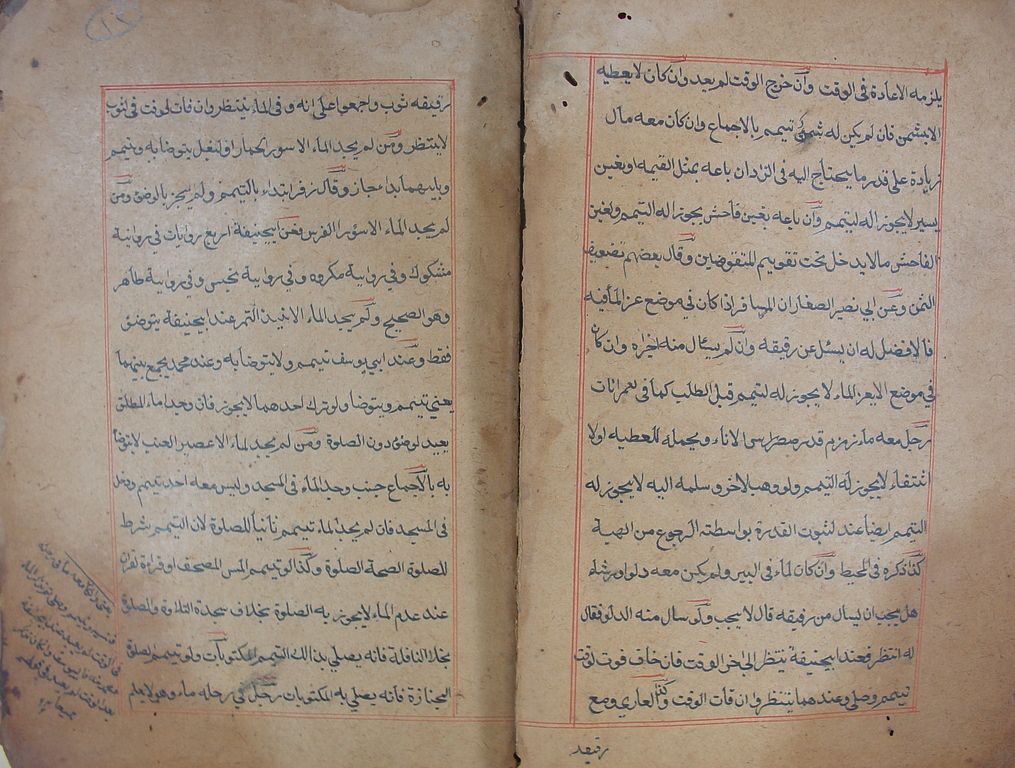 يلزمه الاعادة فى الوقت وان خرج الوقت لم يعد وان كان لا يعطيه
الا بثمن فان لم يكن له ثمن تيمم بالاجماع وان كان معه مال
زيادة على قدر ما يحتاج اليه فى الزاد ان باعه بمثل القيمه او بغبن
يسير لا يجوز له التيمم وان باعه بغبن فاحش يجوز له التيمم ولغبن
الفاحش ما لا يدخل تحت تقويم المتقوضين وقال بعضهم تضعيف
الثمن وعن ابي نصير الصفار ان المسافر اذا كان فى موضع عز الماء فيه
فالافضل له ان يسئل عن رفيقه وان لم يسئال منه اجزاه وان كان
فى موضع لا يعز الماء لا يجوز له لتيمم قبل الطلب كما فى لعمرانات
رجل معه ماء زمزم قدر رصص راس الاناء ويحمله للعطيه او لا
لا يجوز له التيمم ولو وهب لاخر وسلمه اليه لا يجوز له
التيمم ايضا عند لثبوت القدرة بواسطته الرجوع من الهبة
كذا ذكره فى المحيط وان كان لماء فى البير ولم يكن معه دلو او رشاء
هل يجب ان يسال من رفيقه قال لا يجب ولو سال منه الدلو فقال
له انتظر فعند ابيحنيفة ينتظر الى اخر الوقت فان خاف فوت لوقت
تيمم وصلى وعندهما ينتظر وان فات الوقت وكذا العاري ومع
رفيقه
رفيقه ثوب واجمعوا على انه و فى الماء ينتظر وان فات لوقت فى لثوب
لا ينتظر ومن لم يجد الماء الا سور الحمار او لبغل يتوضا به وتيمم
وبايهما بدا جاز وقال زفر ابتداء بالتيمم ولم يجز بالوضؤ ومن
لم يجد الماء الا سؤر الفرس فعن ابيحنيفة اربع روايات فى رواية
مشكوك وفى رواية مكروه وفى رواية نجيس وفى رواية طاهر
وهو الصحيح ولم يجد الماء الا نبيذ التمر عند ابيحنيفة يتوضؤ
فقط وعند ابي يوسف تيمم ولا يتوضا به وعند محمد يجمع بينهما
يعني تيمم ويتوضا ولو ترك احدهما لا يجوز فان وجد الماء المطلق
يعيد لوضؤ دون الصلوة ومن لم يجد لماء الا عصير العنب لا يتوضا
به بالاجماع جنب وجد الماء فى المسجد وليس معه احد تيمم ودخل
فى المسجد فان لم يجد لماء تيمم ثانيا للصلوة لان التيمم شرط
للصلوة الصحة الصلوة وكذا لو تيمم لمس المصحف او قراءة لقران
عند عدم الماء لا يجوز به الصلوة بخلاف سجدة التلاوة والصلوة
النافلة فانه يصلي بذالك التيمم المكتوبات ولو تيمم لصلوة
الجنازة فانه يصلي به المكتوبات رجل في رحله ماء وهو لا يعلم